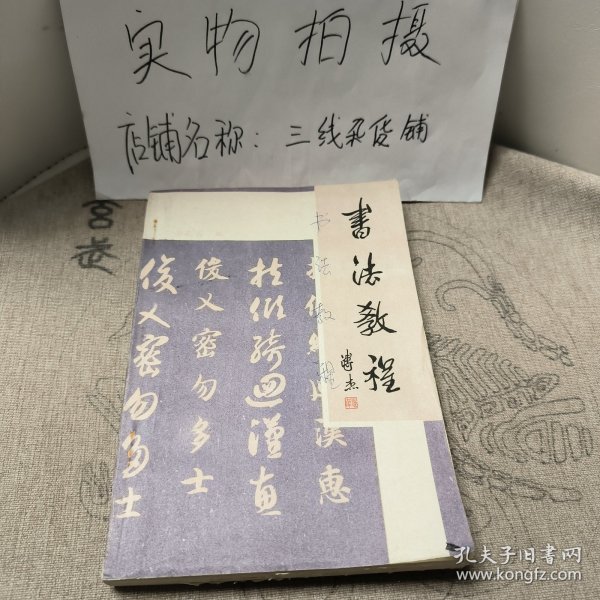 实物拍摄
店铺名称：三线杂货铺
書法教程
溥杰
书法教程
俊乂密勿多士
俊乂密勿多士
桂綺迴漢惠
漢惠
孔夫子旧书网
www.kongfz.com